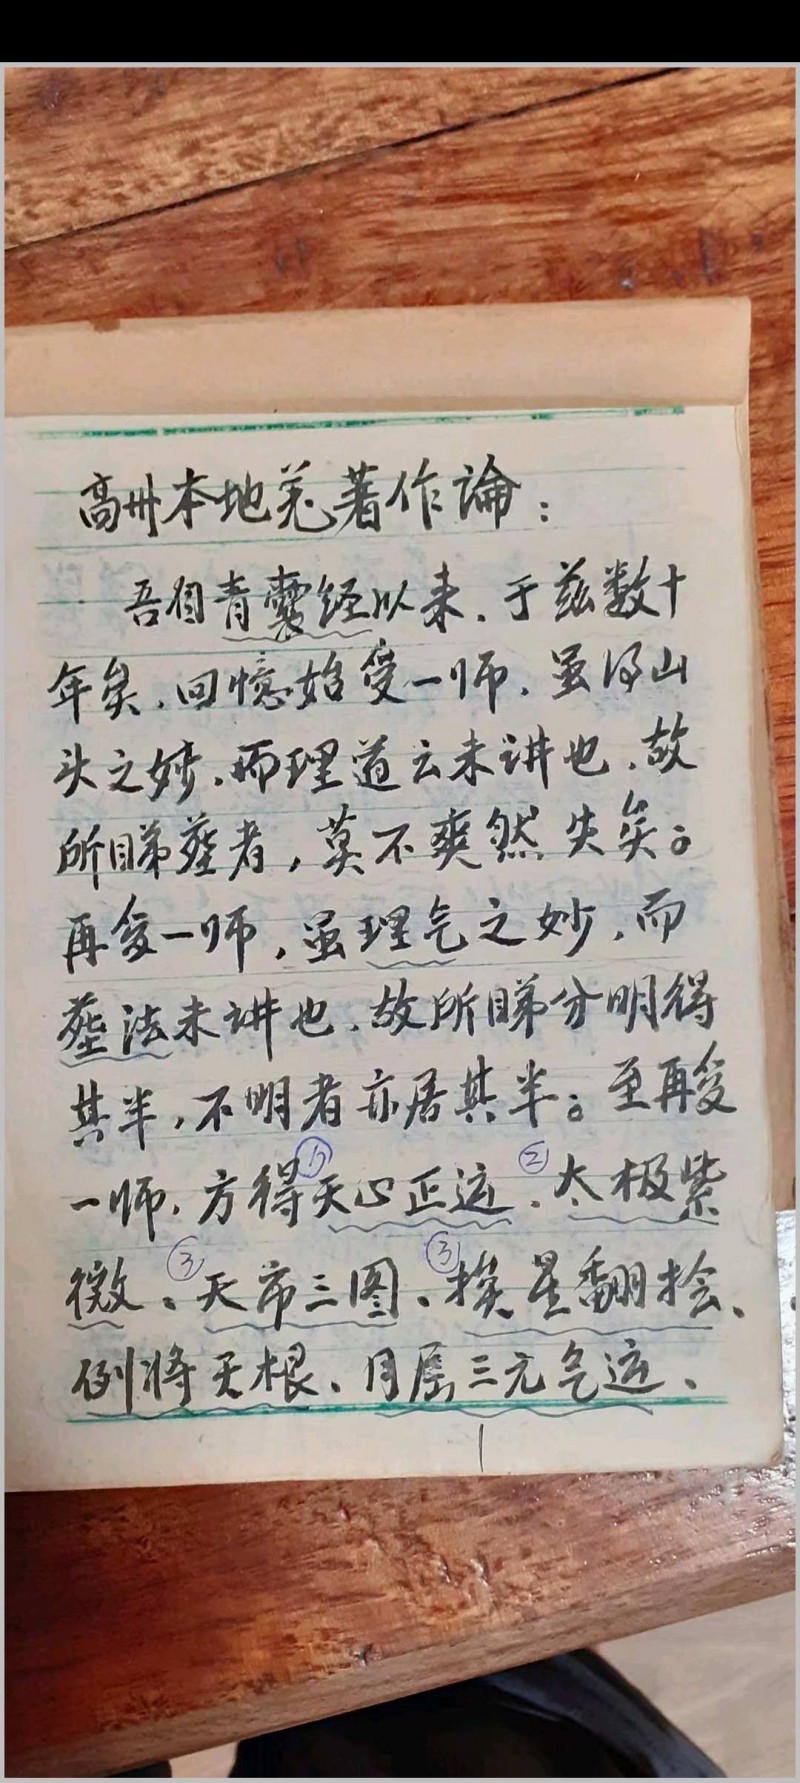 高州本地羌著作論：
吾自青囊经以来、于兹数十
年矣、回憶始受一师、虽得山
头之妙、而理道云未讲也、故
所睇葬者，莫不爽然失矣。
再受一师，虽理气之妙，而
葬法未讲也、故所睇分明得
其半，不明者亦居其半。至再受
一师、方得①天心正运、②太极紫
微、③天市三图、③挨星翻
例将天根、月窟三元气运、
1